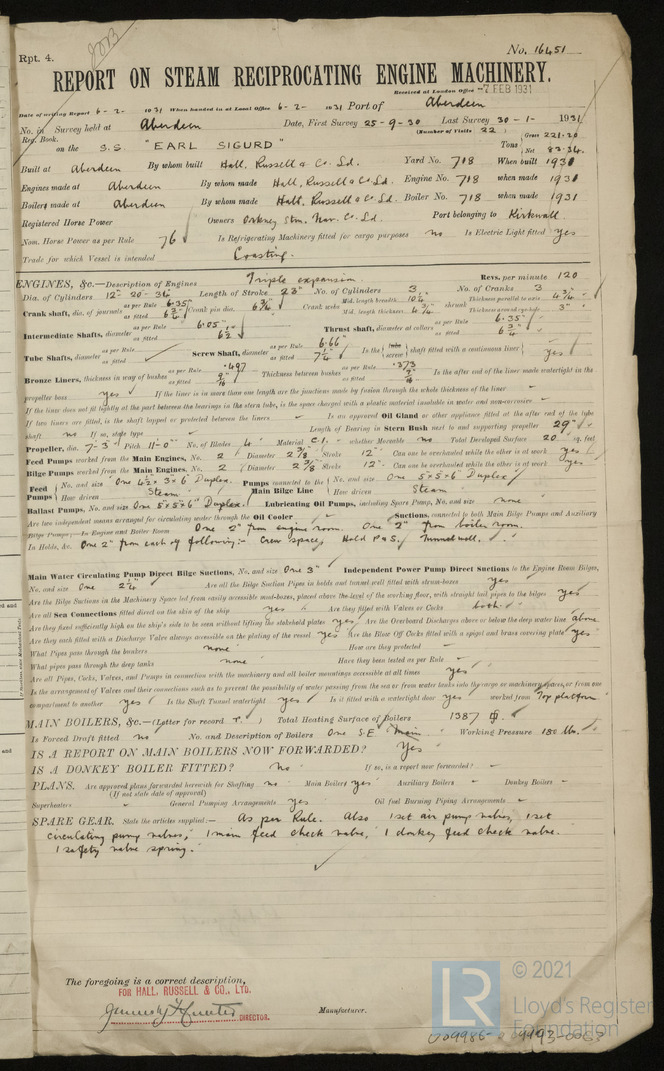 Rpt. 4.
No. 16451
REPORT ON STEAM RECIPROCATING ENGINE MACHINERY.
Received at London Office -7 FEB 1931
Date of writing Report 6-2- 1931 When handed in at Local Office 6-2- 1931 Port of Aberdeen
No. in Survey held at Aberdeen Date, First Survey 25-9-30 Last Survey 30-1- 1931
Reg. Book. (Number of Visits 22)
on the S.S. "EARL SIGURD" Tons Gross 221.20 Net 83.34
Built at Aberdeen By whom built Hall, Russell & Co. Ld. Yard No. 718 When built 1931
Engines made at Aberdeen By whom made Hall, Russell & Co. Ld. Engine No. 718 when made 1931
Boilers made at Aberdeen By whom made Hall, Russell & Co. Ld. Boiler No. 718 when made 1931
Registered Horse Power Owners Orkney Stm. Nav. Co. Ld. Port belonging to Kirkwall
Nom. Horse Power as per Rule 76 Is Refrigerating Machinery fitted for cargo purposes no Is Electric Light fitted yes
Trade for which Vessel is intended Coasting.
ENGINES, &c.—Description of Engines Triple expansion. Revs. per minute 120
Dia. of Cylinders 12"- 20"- 34" Length of Stroke 23" No. of Cylinders 3 No. of Cranks 3
Crank shaft, dia. of journals as per Rule 6.35" as fitted 6 3/4" Crank pin dia. 6 3/4" Crank webs Mid. length breadth 10 1/4" Mid. length thickness 4 3/4" shrunk Thickness parallel to axis 4 1/4" Thickness around eye-hole 3"
Intermediate Shafts, diameter as per Rule 6.05" as fitted 6 1/2" Thrust shaft, diameter at collars as per Rule 6.35" as fitted 6 3/4"
Tube Shafts, diameter as per Rule as fitted Screw Shaft, diameter as per Rule 6.66" as fitted 7 1/4" Is the screw shaft fitted with a continuous liner yes
Bronze Liners, thickness in way of bushes as per Rule .497 as fitted 9/16" Thickness between bushes as per Rule .373 as fitted Is the after end of the liner made watertight in the
propeller boss yes If the liner is in more than one length are the junctions made by fusion through the whole thickness of the liner
If the liner does not fit tightly at the part between the bearings in the stern tube, is the space charged with a plastic material insoluble in water and non-corrosive
If two liners are fitted, is the shaft lapped or protected between the liners Is an approved Oil Gland or other appliance fitted at the after end of the tube
shaft no If so, state type Length of Bearing in Stern Bush next to and supporting propeller 29"
Propeller, dia. 7'-3" Pitch 11'-0" No. of Blades 4 Material C.I. whether Moveable no Total Developed Surface 20 sq. feet
Feed Pumps worked from the Main Engines, No. 2 Diameter 2 3/8" Stroke 12" Can one be overhauled while the other is at work yes
Bilge Pumps worked from the Main Engines, No. 2 Diameter 2 3/8" Stroke 12" Can one be overhauled while the other is at work yes
Feed Pumps No. and size One 4 1/2 x 3 x 6" Duplex. How driven Steam Pumps connected to the Main Bilge Line No. and size One 5 x 5 x 6" Duplex How driven Steam
Ballast Pumps, No. and size One 5 x 5 x 6" Duplex. Lubricating Oil Pumps, including Spare Pump, No. and size none
Are two independent means arranged for circulating water through the Oil Cooler Suctions, connected to both Main Bilge Pumps and Auxiliary
Bilge Pumps;—In Engine and Boiler Room One 2" from engine room. One 2" from boiler room.
In Holds, &c. One 2" from each of following:- Crew space, Hold P & S. Tunnel well.
Main Water Circulating Pump Direct Bilge Suctions, No. and size One 3" Independent Power Pump Direct Suctions to the Engine Room Bilges,
No. and size One 2 1/4" Are all the Bilge Suction Pipes in holds and tunnel well fitted with strum-boxes yes
Are the Bilge Suctions in the Machinery Space led from easily accessible mud-boxes, placed above the level of the working floor, with straight tail pipes to the bilges yes
Are all Sea Connections fitted direct on the skin of the ship yes Are they fitted with Valves or Cocks both
Are they fixed sufficiently high on the ship's side to be seen without lifting the stokehold plates yes Are the Overboard Discharges above or below the deep water line above
Are they each fitted with a Discharge Valve always accessible on the plating of the vessel yes Are the Blow Off Cocks fitted with a spigot and brass covering plate yes
What Pipes pass through the bunkers none How are they protected
What pipes pass through the deep tanks none Have they been tested as per Rule
Are all Pipes, Cocks, Valves, and Pumps in connection with the machinery and all boiler mountings accessible at all times yes
Is the arrangement of Valves and their connections such as to prevent the possibility of water passing from the sea or from water tanks into the cargo or machinery spaces, or from one
compartment to another yes Is the Shaft Tunnel watertight yes Is it fitted with a watertight door yes worked from Top platform
MAIN BOILERS, &c.—(Letter for record r.) Total Heating Surface of Boilers 1387
Is Forced Draft fitted no No. and Description of Boilers One S.E. Main Working Pressure 180 lbs.
IS A REPORT ON MAIN BOILERS NOW FORWARDED? Yes
IS A DONKEY BOILER FITTED? no If so, is a report now forwarded?
PLANS. Are approved plans forwarded herewith for Shafting no Main Boilers yes Auxiliary Boilers Donkey Boilers
(If not state date of approval)
Superheaters General Pumping Arrangements yes Oil fuel Burning Piping Arrangements
SPARE GEAR. State the articles supplied:— As per Rule. Also 1 set air pump valves, 1 set
circulating pump valves, 1 main feed check valve, 1 donkey feed check valve.
1 safety valve spring.
The foregoing is a correct description,
FOR HALL, RUSSELL & CO., LTD.
DIRECTOR.
Manufacturer.
© 2021
LR
Lloyd's Register
Foundation